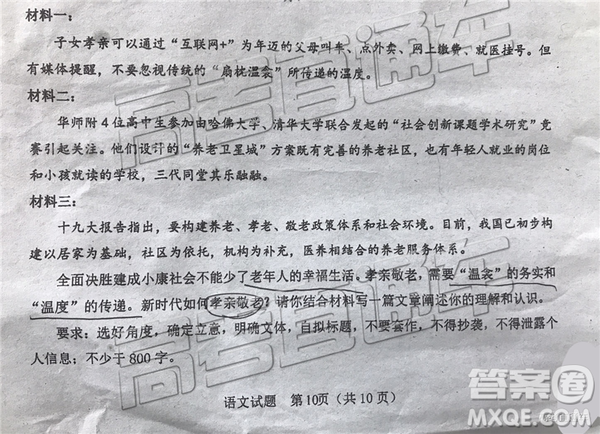 材料一：
子女孝亲可以通过“互联网+”为年迈的父母叫车、点外卖、网上缴费、就医挂号。但
有媒体提醒，不要忽视传统的“扇枕温衾”所传递的温度。
材料二：
华师附4位高中生参加由哈佛大学、清华大学联合发起的“社会创新课题学术研究”竞
赛引起关注。他们设计的“养老卫星城”方案既有完善的养老社区，也有年轻人就业的岗位
和小孩就读的学校，三代同堂其乐融融。
材料三：
十九大报告指出，要构建养老、孝老、敬老政策体系和社会环境。目前，我国已初步构
建以居家为基础，社区为依托，机构为补充，医养相结合的养老服务体系。
全面决胜建成小康社会不能少了老年人的幸福生活。孝亲敬老，需要“温衾”的务实和
“温度”的传递。新时代如何孝亲敬老？请你结合材料写一篇文章阐述你的理解和认识。
要求：选好角度，确定立意，明确文体，自拟标题，不要套作，不得抄袭，不得泄露个
人信息；不少于800字。
语文试题 第10页（共10页）
高考直通车
高考直通车
答案卷
MXQE.COM